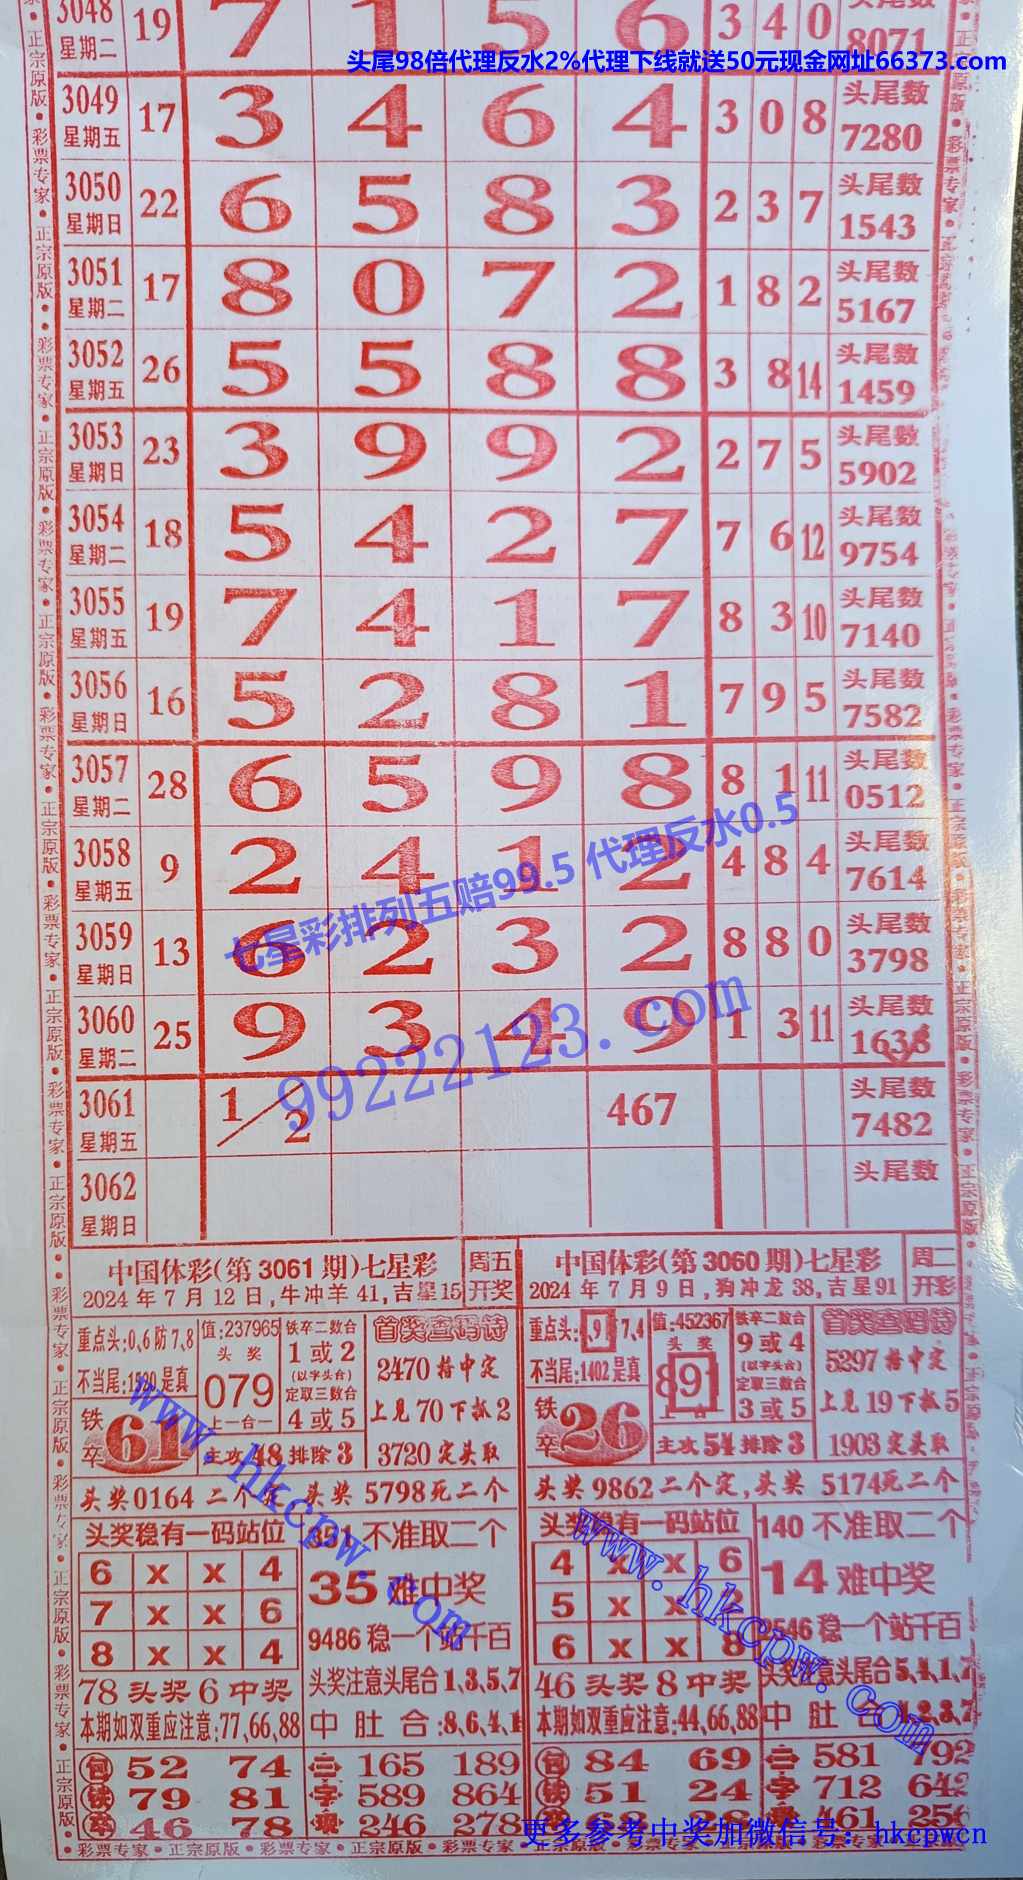 3048 19 7 1 5 6 3 4 0 头尾数
星期二 8071
头尾98倍代理反水2%代理下线就送50元现金网址66373.com
3049 17 3 4 6 4 3 0 8 头尾数
星期五 7280
3050 22 6 5 8 3 2 3 7 头尾数
星期日 1543
3051 17 8 0 7 2 1 8 2 头尾数
星期二 5167
3052 26 5 5 8 8 3 8 14 头尾数
星期五 1459
3053 23 3 9 9 2 2 7 5 头尾数
星期日 5902
3054 18 5 4 2 7 7 6 12 头尾数
星期二 9754
3055 19 7 4 1 7 8 3 10 头尾数
星期五 7140
3056 16 5 2 8 1 7 9 5 头尾数
星期日 7582
3057 28 6 5 9 8 8 1 11 头尾数
星期二 0512
3058 9 2 4 1 2 4 8 4 头尾数
星期五 7614
七星彩排列五赔99.5 代理反水0.5
3059 13 6 2 3 2 8 8 0 头尾数
星期日 3798
3060 25 9 3 4 9 1 3 11 头尾数
星期二 1638
99222123.com
3061 1/2 467 头尾数
星期五 7482
3062 头尾数
星期日
中国体彩(第3061期)七星彩 周五
2024年7月12日,牛冲羊41,吉星15 开奖
重点头:0,6防7,8
不当尾:1520是真
铁卒 61
值:237965
头奖
079
上一合一
铁卒二数合
1或2
(以字头合)
定取三数合
4或5
主攻48排除3
首奖查码诗
2470 持中定
上见70下抓2
3720 定头取
头奖0164 二个定 头奖 5798死二个
头奖稳有一码站位
6 x x 4
7 x x 6
8 x x 4
351不准取二个
35难中奖
9486稳一个站千百
78头奖6中奖
头奖注意头尾合1,3,5,7
本期如双重应注意:77,66,88
中肚合:8,6,4,1
包 52 74
铁 79 81
卒 46 78
三 165 189
字 589 864
现 246 278
中国体彩(第3060期)七星彩 周二
2024年7月9日,狗冲龙38,吉星91 开彩
重点头:4,9 7,4
不当尾:1402是真
铁卒 26
值:452367
头奖
891
铁卒二数合
9或4
(以字头合)
定取三数合
3或5
主攻54排除3
首奖查码诗
5297 持中定
上见19下抓5
1903 定头取
头奖9862二个定,头奖 5174死二个
头奖稳有一码站位
4 x x 6
5 x x
6 x x 8
140不准取二个
14难中奖
2546稳一个站千百
46头奖8中奖
头奖注意头尾合5,4,1,7
本期如双重应注意:44,66,88
中肚合:1,2,3,7
包 84 69
铁 51 24
卒 68 28
三 581 792
字 712 642
现 461 256
www.hkcpw.com
www.hkcpw.com
更多参考中奖加微信号: hkcpwcn
彩票专家·正宗原版·彩票专家·正宗原版·彩票专家·正宗原版·彩票专家·正宗原版·彩票专家·正宗原版